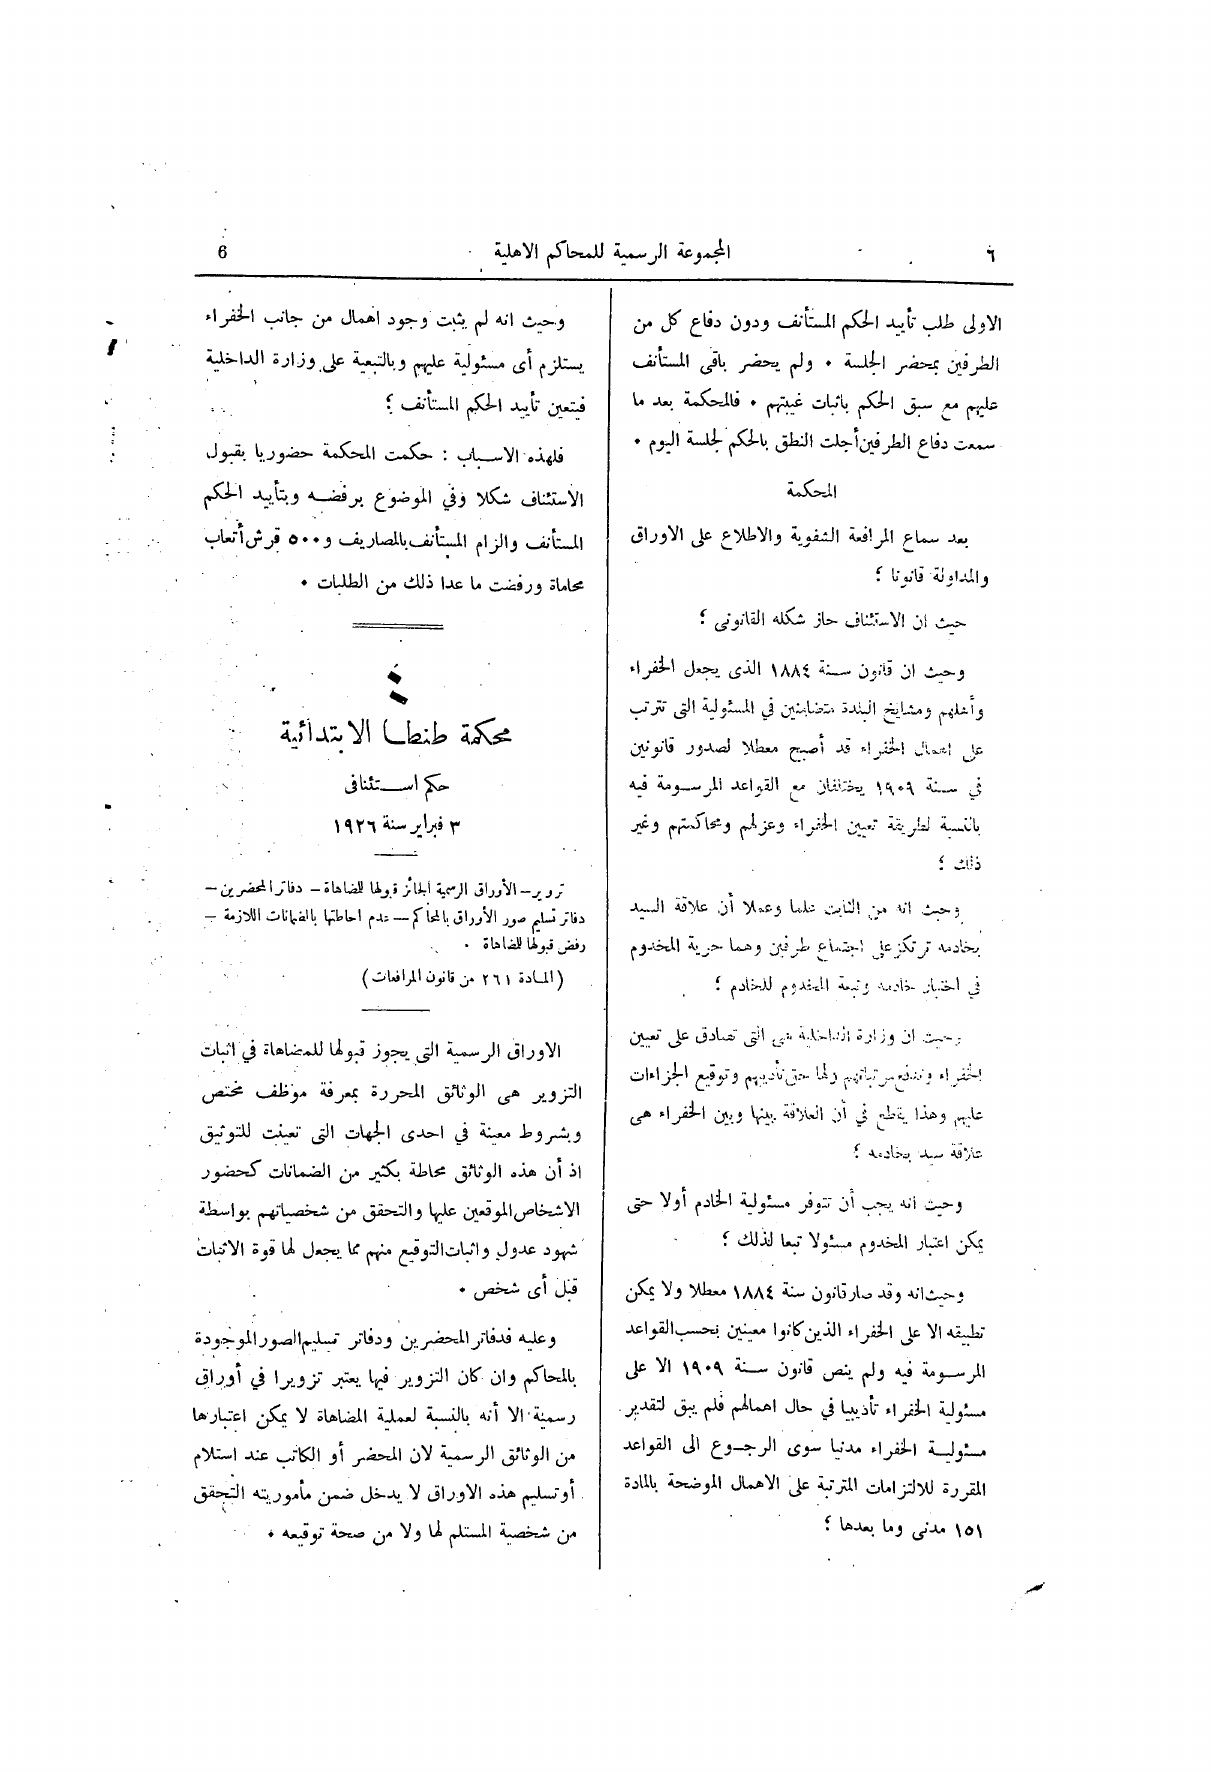 ٦
المجموعة الرسمية للمحاكم الاهلية
6
الاولى طلب تأييد الحكم المستأنف ودون دفاع كل من
الطرفين بمحضر الجلسة ٠ ولم يحضر باقى المستأنف
عليهم مع سبق الحكم باثبات غيبتهم ٠ فالمحكمة بعد ما
سمعت دفاع الطرفين أجلت النطق بالحكم لجلسة اليوم ٠
المحكمة
بعد سماع المرافعة الشفوية والاطلاع على الاوراق
والمداولة قانونا ؛
حيث ان الاستئناف حاز شكله القانونى ؛
وحيث ان قانون سنة ١٨٨٤ الذى يجعل الخفراء
وأهلهم ومشايخ البلدة متضامنين في المسئولية التى تترتب
على اهمال الخفراء قد أصبح معطلا لصدور قانونين
في سنة ١٩٠٩ يختلفان مع القواعد المرسومة فيه
بالنسبة لطريقة تعيين الخفراء وعزلهم ومحاكمتهم وغير
ذلك ؛
وحيث انه من الثابت علما وعملا أن علاقة السيد
بخادمه ترتكز على اجتماع طرفين وهما حرية المخدوم
في اختيار خادمه وتبعة المخدوم للخادم ؛
وحيث ان وزارة الداخلية هى التى تصادق على تعيين
الخفراء وتدفع مرتباتهم ولها حق تأديبهم وتوقيع الجزاءات
عليهم وهذا يقطع في أن العلاقة بينها وبين الخفراء هى
علاقة سيد بخادمه ؛
وحيث انه يجب أن تتوفر مسئولية الخادم أولا حتى
يمكن اعتبار المخدوم مسئولا تبعا لذلك ؛
وحيث انه وقد صار قانون سنة ١٨٨٤ معطلا ولا يمكن
تطبيقه الا على الخفراء الذين كانوا معينين بحسب القواعد
المرسومة فيه ولم ينص قانون سنة ١٩٠٩ الا على
مسئولية الخفراء تأديبيا في حال اهمالهم فلم يبق لتقدير
مسئولية الخفراء مدنيا سوى الرجوع الى القواعد
المقررة للالتزامات المترتبة على الاهمال الموضحة بالمادة
١٥١ مدنى وما بعدها ؛
وحيث انه لم يثبت وجود اهمال من جانب الخفراء
يستلزم أى مسئولية عليهم وبالتبعية على وزارة الداخلية
فيتعين تأييد الحكم المستأنف ؛
فلهذه الاسباب : حكمت المحكمة حضوريا بقبول
الاستئناف شكلا وفي الموضوع برفضه وبتأييد الحكم
المستأنف والزام المستأنف بالمصاريف و٥٠٠ قرش أتعاب
محاماة ورفضت ما عدا ذلك من الطلبات ٠
٤
محكمة طنطا الابتدائية
حكم استئنافى
٣ فبراير سنة ١٩٢٦
تزوير – الأوراق الرسمية الجائز قبولها للضاهاة – دفاتر المحضرين –
دفاتر تسليم صور الأوراق بالمحاكم – عدم احاطتها بالضمانات اللازمة –
رفض قبولها للضاهاة ٠
(المادة ٢٦١ من قانون المرافعات)
الاوراق الرسمية التى يجوز قبولها للمضاهاة في اثبات
التزوير هى الوثائق المحررة بمعرفة موظف مختص
وبشروط معينة في احدى الجهات التى تعينت للتوثيق
اذ أن هذه الوثائق محاطة بكثير من الضمانات كحضور
الاشخاص الموقعين عليها والتحقق من شخصياتهم بواسطة
شهود عدول واثبات التوقيع منهم مما يجعل لها قوة الاثبات
قبل أى شخص ٠
وعليه فدفاتر المحضرين ودفاتر تسليم الصور الموجودة
بالمحاكم وان كان التزوير فيها يعتبر تزويرا في أوراق
رسمية الا أنه بالنسبة لعملية المضاهاة لا يمكن اعتبارها
من الوثائق الرسمية لان المحضر أو الكاتب عند استلام
أو تسليم هذه الاوراق لا يدخل ضمن مأموريته التحقق
من شخصية المستلم لها ولا من صحة توقيعه ٠